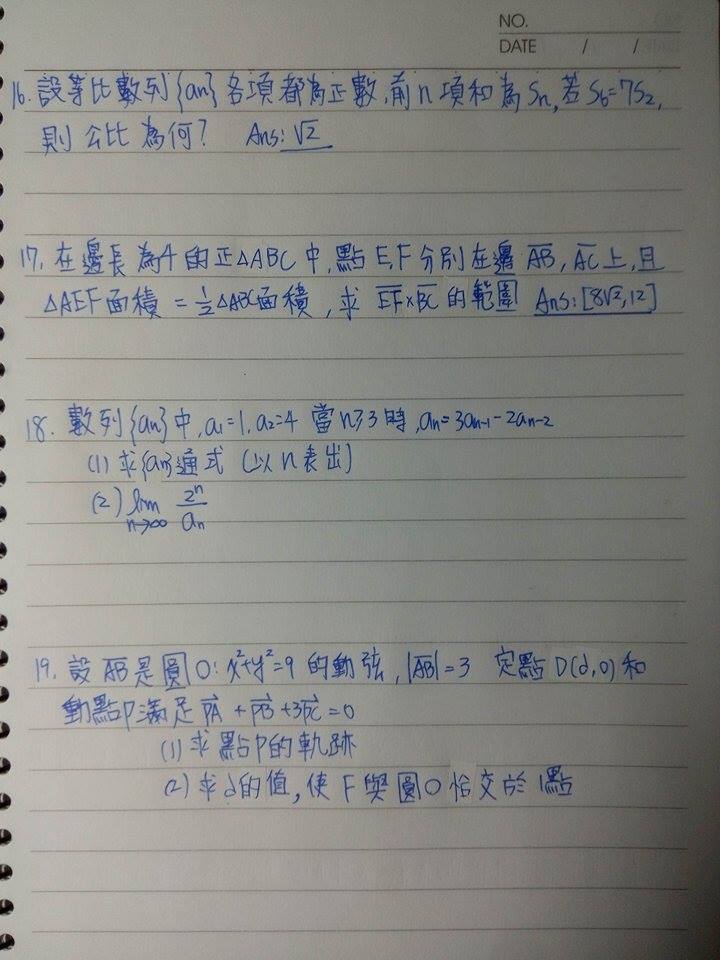 NO.
DATE / /
16. 設等比數列{an}各項都為正數,前n項和為Sn,若S6=7S2,
則公比為何? Ans: √2
17. 在邊長為4的正△ABC中,點E,F分別在邊AB,AC上,且
△AEF面積=½△ABC面積,求EF×BC的範圍 Ans:[8√2,12]
18. 數列{an}中,a1=1,a2=4 當n≥3時,an=3an-1-2an-2
(1) 求{an}通式 (以n表出)
(2) lim n→∞ 2ⁿ/an
19. 設AB是圓O: x²+y²=9 的動弦,|AB|=3 定點D(d,0)和
動點P滿足PA+PB+3PC=0
(1) 求點P的軌跡
(2) 求d的值,使F與圓O恰交於1點